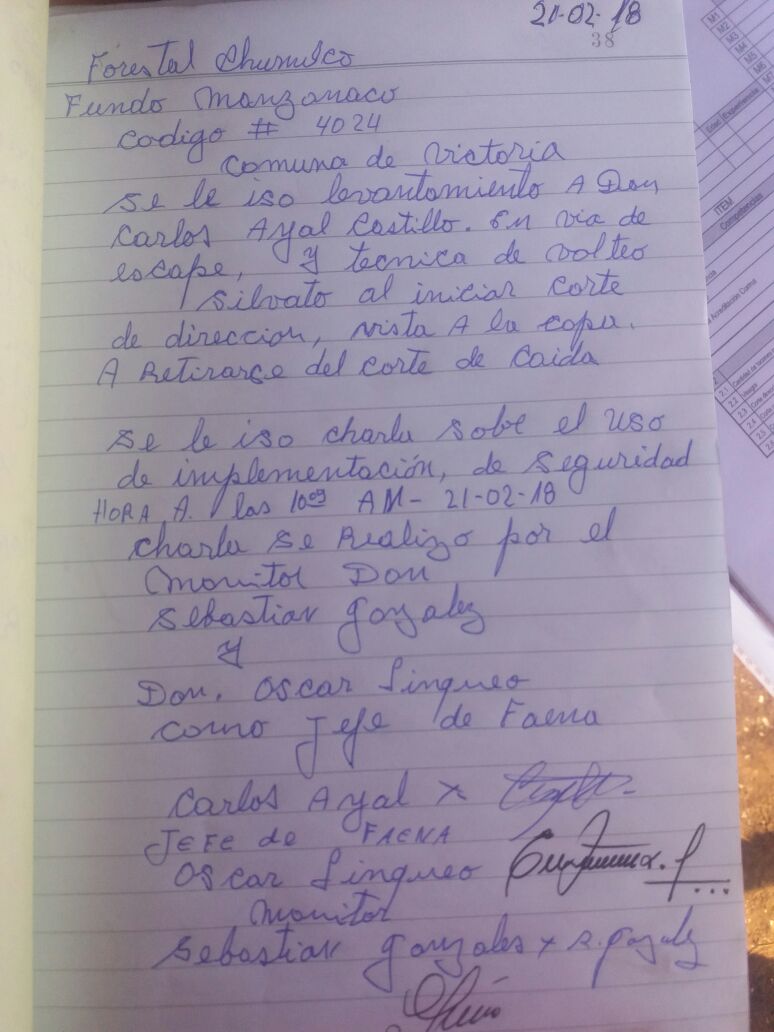 21-02-18
38
Forestal Chumulco
Fundo Manzanaco
codigo # 4024
comuna de victoria
se le iso levantamiento A Don
Carlos Ayal Castillo. En via de
escape, y tecnica de volteo
silvato al iniciar corte
de direccion, vista A la copa.
A Retirarse del corte de Caida
se le iso charla sobe el uso
de implementación, de seguridad
HORA A. las 10:09 AM- 21-02-18
charla se Realizo por el
monitol Don
Sebastian gonzalez
y
Don. Oscar Linqueo
como Jefe de Faena
Carlos Ayal x
JEFE de FAENA
Oscar Linqueo
monitor
Sebastian gonzales x s. gonzalez
M1
M2
M3
M4
M5
M6
Edad
Experiencia
ITEM
Competencias
2
2.1
2.2
2.3
2.4
2.5